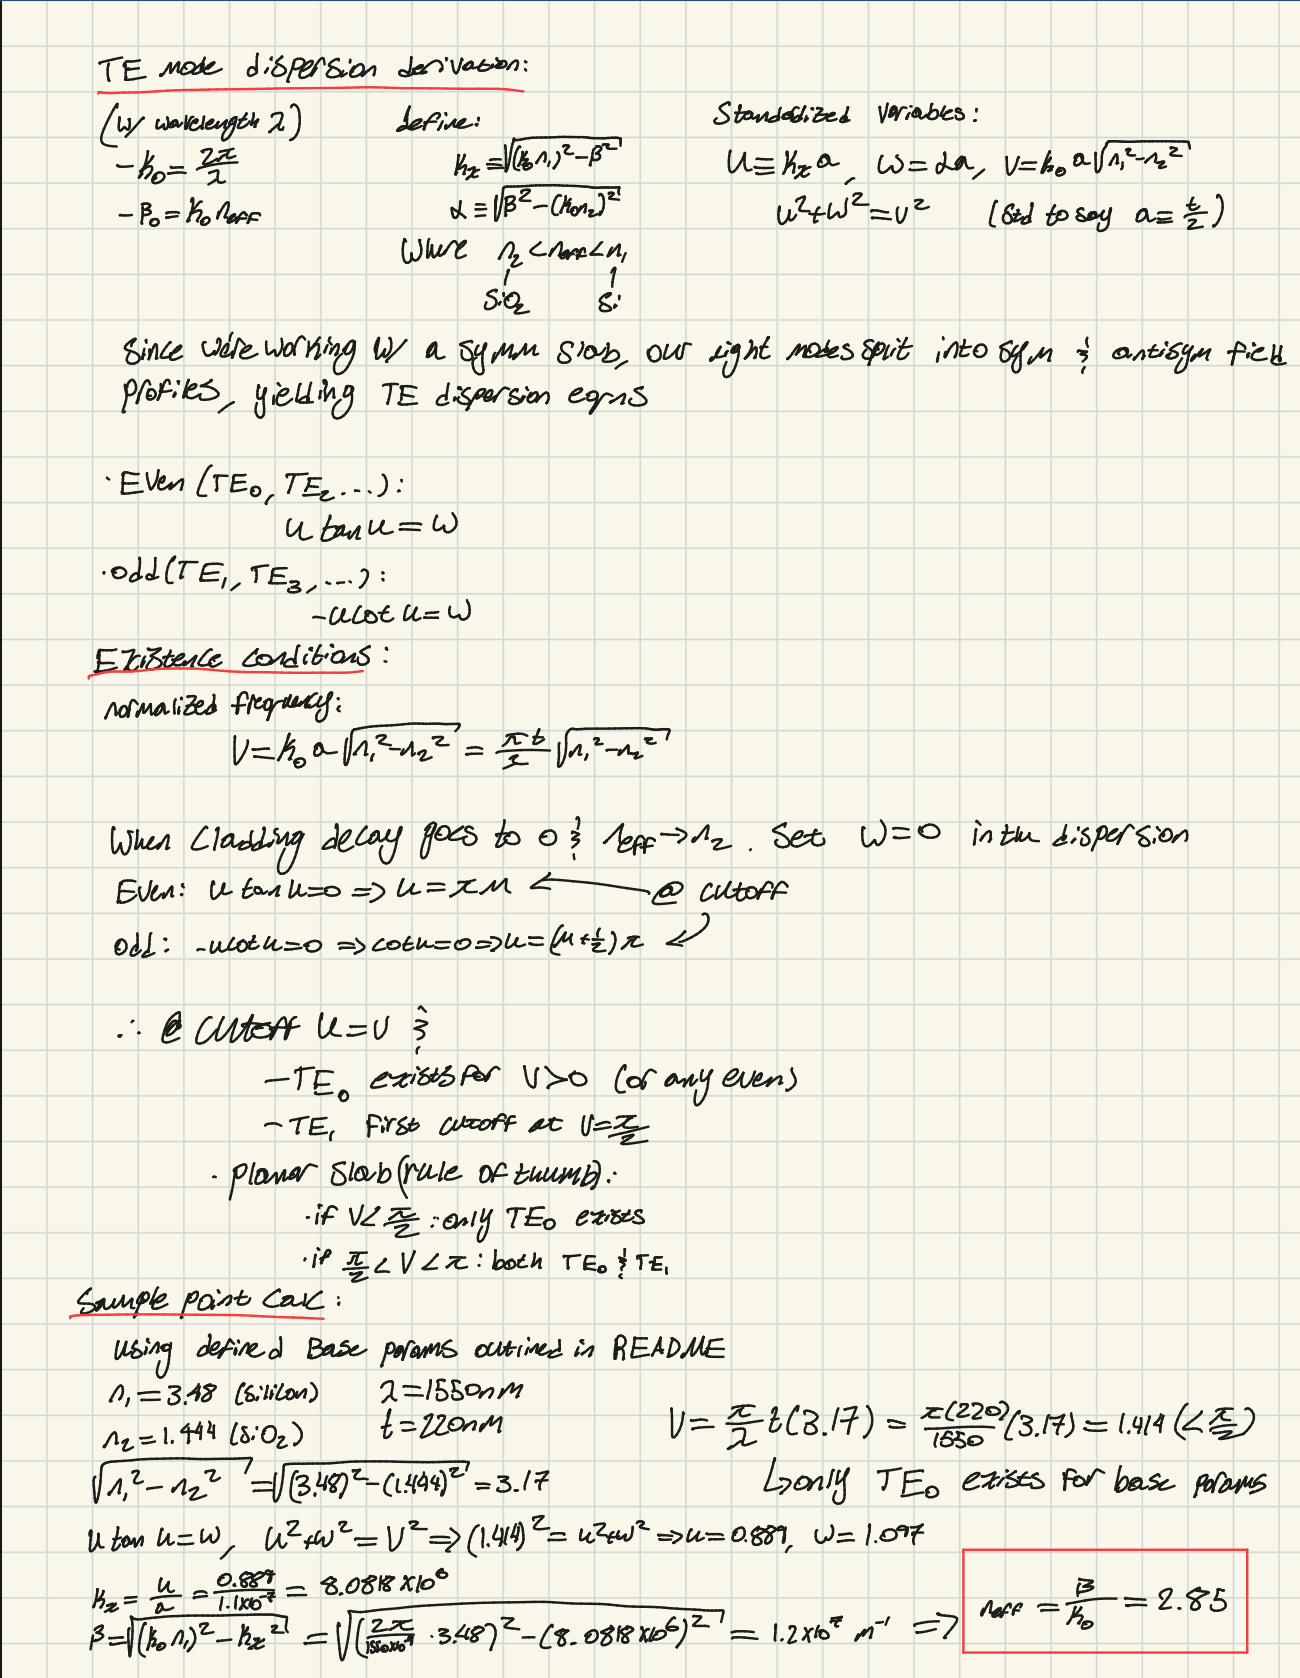 TE mode dispersion derivation:
(w/ wavelength λ)
- k₀ = 2π/λ
- β₀ = k₀ n_eff
define:
k_x ≡ √((k₀n₁)² - β²)
α ≡ √(β² - (k₀n₂)²)
Where n₂ < n_eff < n₁
SiO₂ Si
Standardized Variables:
u ≡ k_x a, w = αa, v = k₀ a √(n₁² - n₂²)
u² + w² = v² (std to say a ≡ t/2)
Since we're working w/ a symm slab, our light modes split into sym & antisym field
profiles, yielding TE dispersion eqns
· Even (TE₀, TE₂ ...):
u tan u = w
· odd (TE₁, TE₃, ...):
-u cot u = w
Existence conditions:
normalized frequency:
V = k₀ a √(n₁² - n₂²) = πt/λ √(n₁² - n₂²)
When cladding decay goes to 0 & n_eff → n₂. Set w = 0 in the dispersion
Even: u tan u = 0 => u = πm ← @ cutoff
odd: -u cot u = 0 => cot u = 0 => u = (m + ½)π ↙
∴ @ cutoff u = v &
- TE₀ exists for V > 0 (or any even)
- TE₁ first cutoff at v = π/2
· planar slab (rule of thumb):
· if V < π/2 : only TE₀ exists
· if π/2 < V < π : both TE₀ & TE₁
Sample point calc:
using defined Base params outlined in README
n₁ = 3.48 (silicon) λ = 1550nm
n₂ = 1.444 (SiO₂) t = 220nm
√(n₁² - n₂²) = √((3.48)² - (1.444)²) = 3.17
V = π/λ t(3.17) = π(220)/1550 (3.17) = 1.414 (< π/2)
↳ only TE₀ exists for base params
u tan u = w, u² + w² = V² => (1.414)² = u² + w² => u = 0.889, w = 1.097
k_x = u/a = 0.889/1.1x10⁻⁷ = 8.0818 x10⁶
β = √((k₀n₁)² - k_x²) = √((2π/1550x10⁻⁹ · 3.48)² - (8.0818x10⁶)²) = 1.2x10⁷ m⁻¹ =>
n_eff = β/k₀ = 2.85